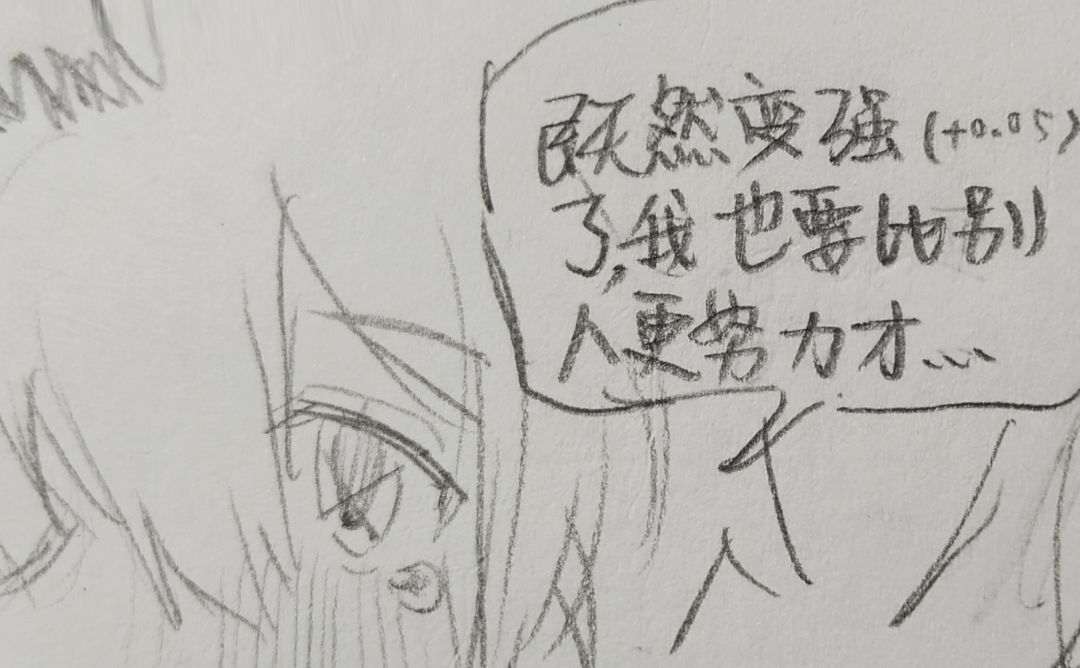 既然变强(+0.05)
了,我也要比别
人更努力才...